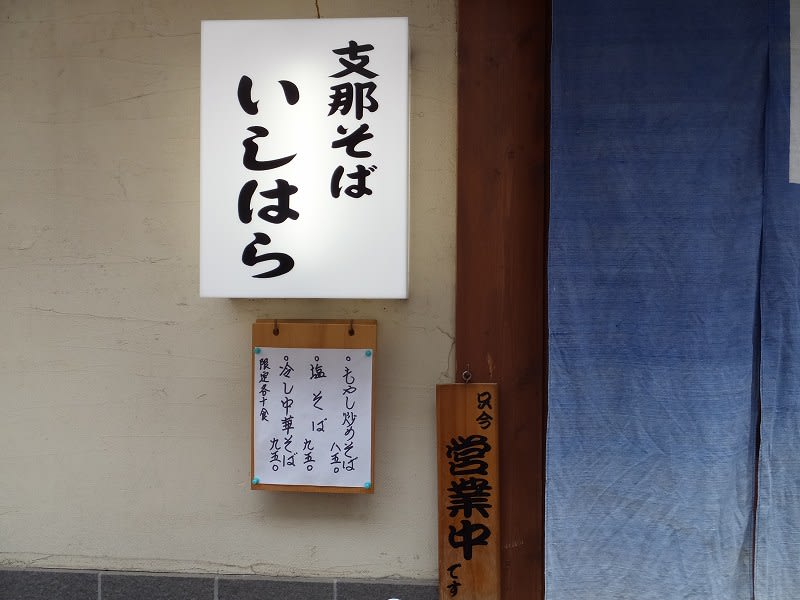 支那そば
いしはら
○もやし炒めそば 八五〇
○塩そば 九五〇
○冷し中華そば 九五〇
限定各十食
只今
営業中
です